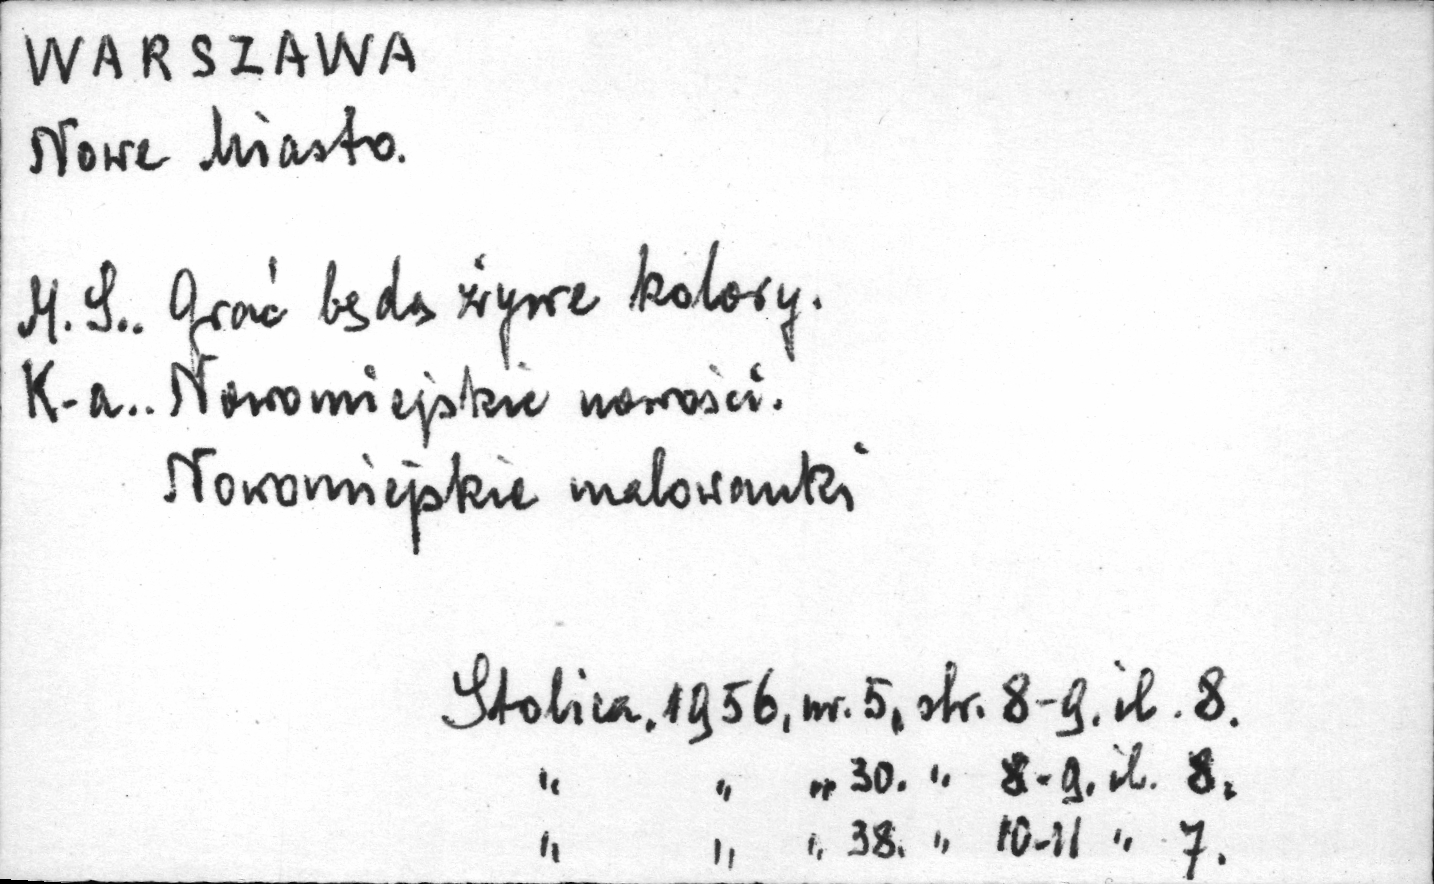 WARSZAWA
Nowe Miasto.
M. S.. Grać będą żywe kolory.
K-a.. Nowomiejskie nowości.
Nowomiejskie malowanki
Stolica. 1956, nr. 5, str. 8-9. il. 8.
" " " 30. " 8-9. il. 8.
" " " 38. " 10-11 " 7.